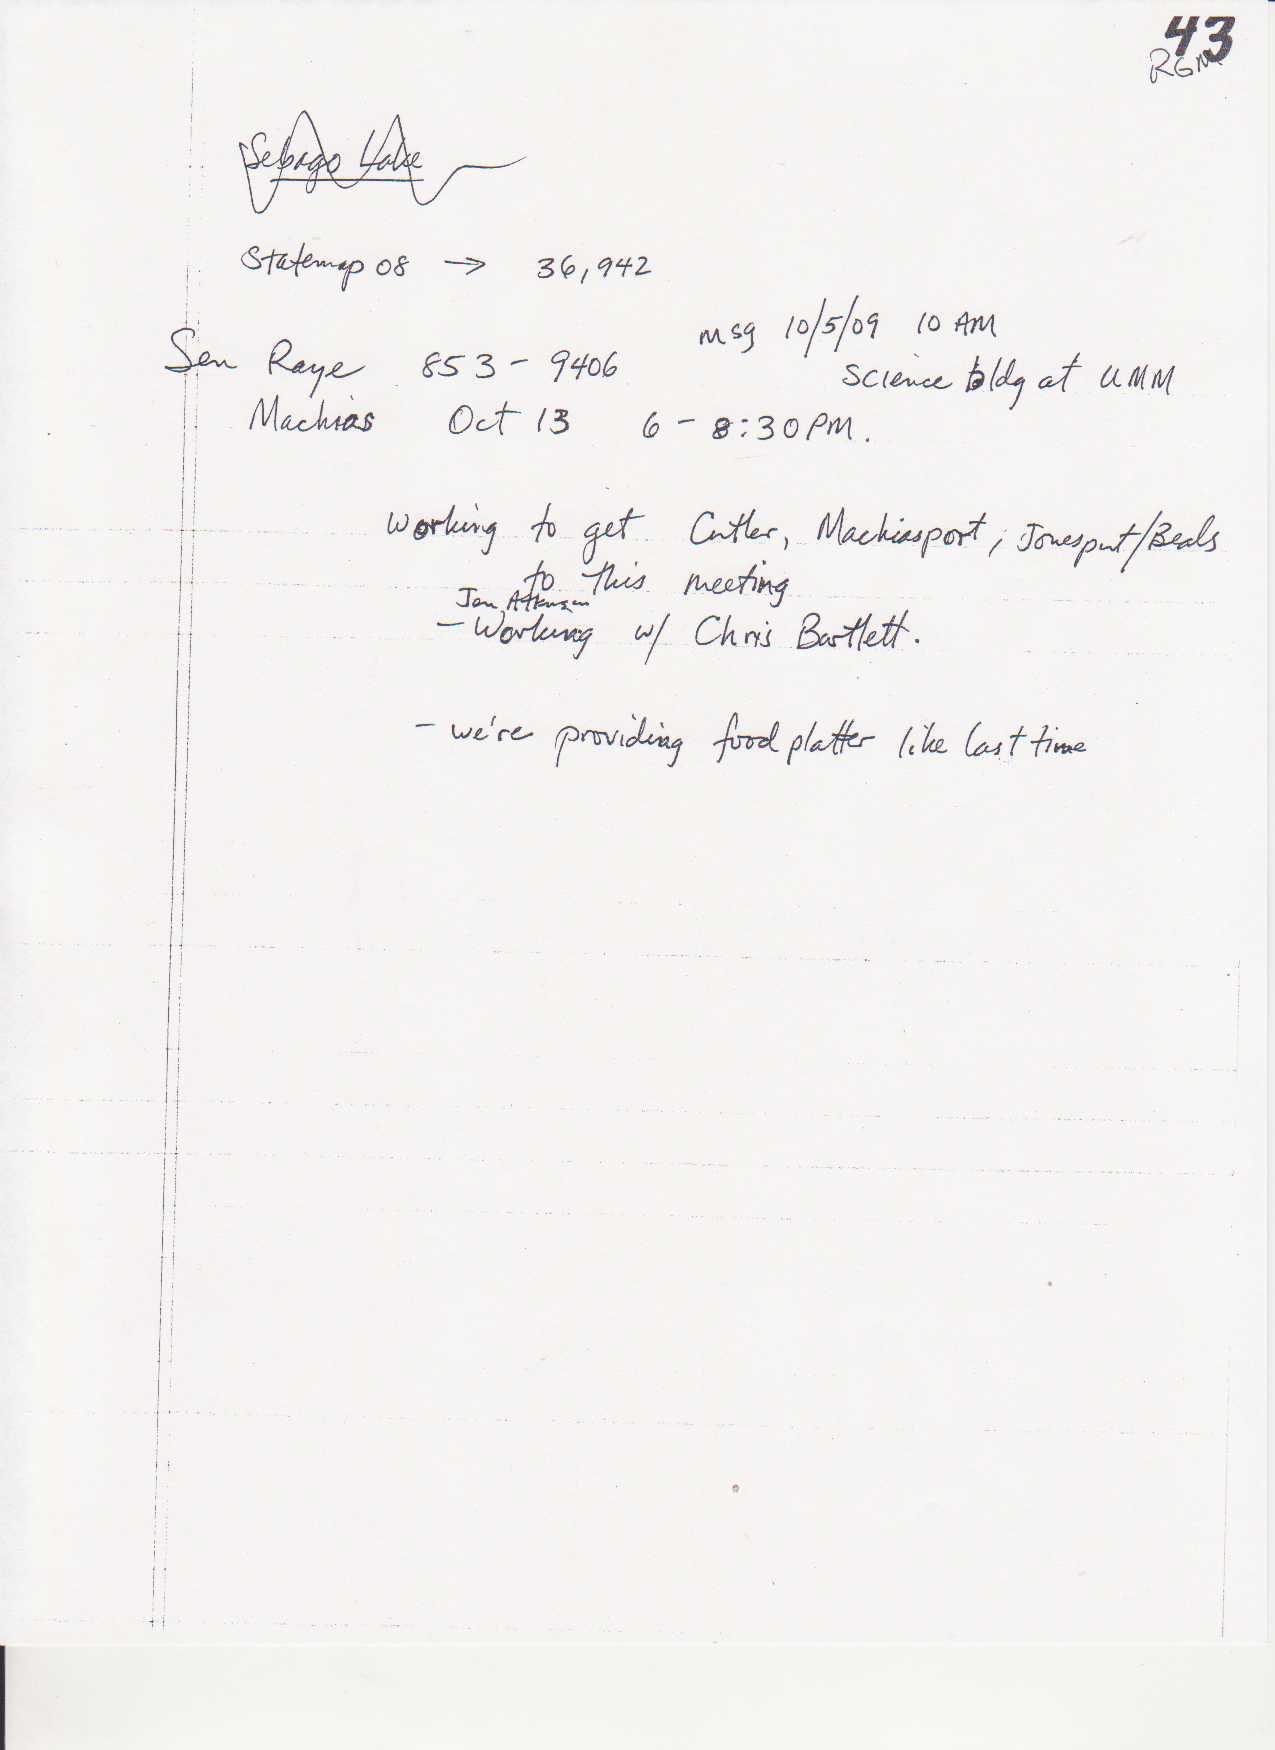 43
RGM
Sebago Lake
Statemap 08 → 36,942
msg 10/5/09 10 AM
Sen Raye 853-9406
Science bldg at UMM
Machias Oct 13 6 - 8:30 PM.
Working to get Cutler, Machiasport, Jonesport/Beals
to this meeting
Jen Atkinson
- Working w/ Chris Bartlett.
- we're providing food platter like last time